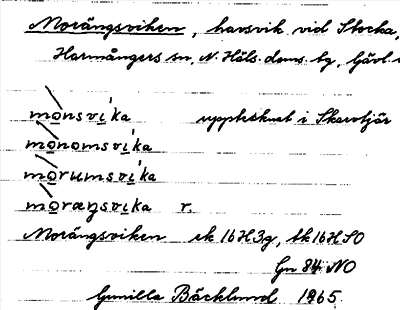 Morängsviken, havsvik vid Stocka,
Harmångers sn, N. Häls. doms. bg, Gävl.
monsvíka upptecknat i Skarvtjär
monomsvíka
morumsvíka
moræŋsvika r.
Morängsviken ek 16H3g, tk 16H SO
Gn 84 NO
Gunilla Bäcklund 1965.